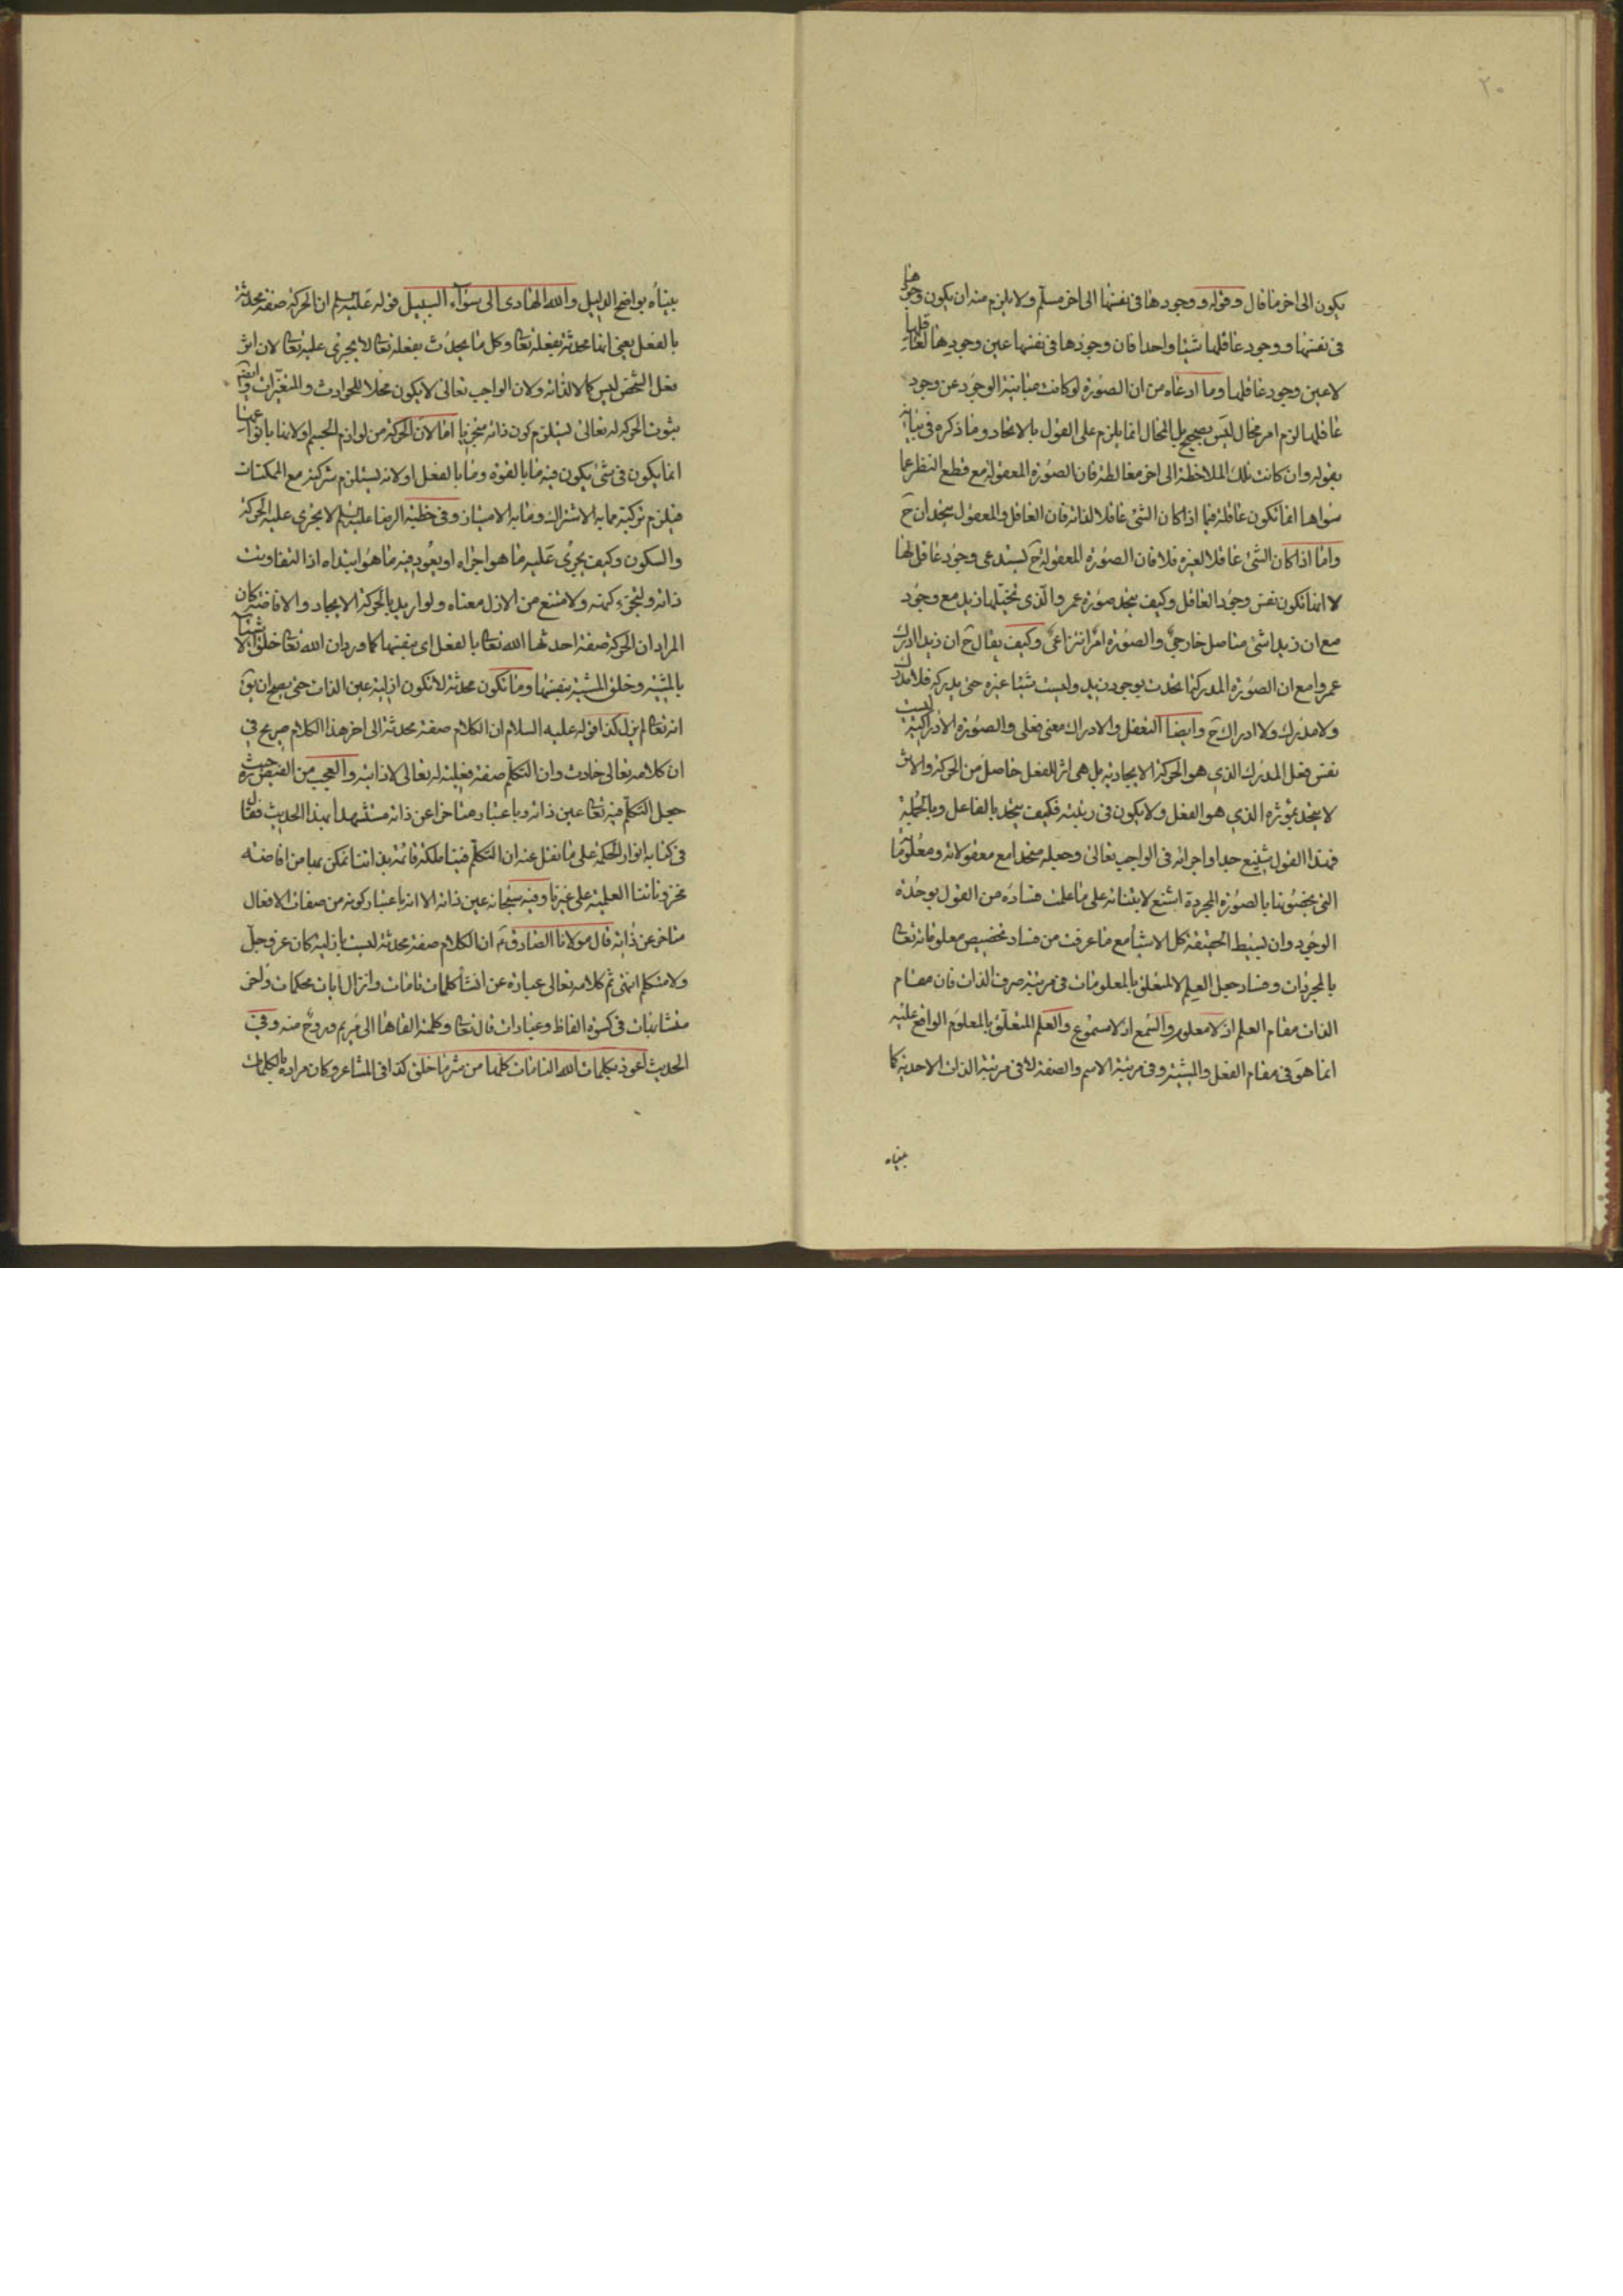 ٢٠
يكون الى اخر ما قال وقوله ووجودها فى نفسها الى اخر مسلّم ولا يلزم منه ان يكون وجودها
فى نفسها ووجود عاقلها شيئا واحدا فان وجودها فى نفسها عين وجودها لعاقلها
لا عين وجود عاقلها وما ادعاه من ان الصورة لو كانت مباينة الوجود عن وجود
عاقلها لزم امر محال ليس بصحيح بل المحال انما يلزم على القول بالاتحاد وما ذكره فى بيانه
بقوله وان كانت تلك الملاحظة الى اخر مغالطة فان الصورة المعقولة مع قطع النظر عما
سواها انما تكون عاقلة فيما اذا كان الشئ عاقلا لذاته فان العاقل والمعقول يتحدان ح
واما اذا كان الشئ عاقلا لغيره فلا فان الصورة المعقولة ح يستدعى وجود عاقل لها
لا انها تكون نفس وجود العاقل وكيف يتحد صورة عمرو الّذى تخيّلها زيد مع وجود
مع ان زيدا شئ متاصل خارجى والصورة امر انتزاعى وكيف يقال ح ان زيدا ادرك
عمروا مع ان الصورة المدركة انما تحدث بوجود زيد وليست شيئا غيره حتى يدركه فلا مدرك
ولا مدرك ولا ادراك ح وايضا التعقل والادراك معنى فعلى والصورة الادراكية ليست
نفس فعل المدرك الذى هو الحركة الايجادية بل هى اثر الفعل حاصل من الحركة والاثر
لا يتحد بمؤثره الذى هو الفعل ولا يكون فى رتبته فكيف يتحد بالفاعل وبالجملة
فهذا القول شنيع جدا واجراؤه فى الواجب تعالى وجعله متحدا مع معقولاته ومعلوماته
التى يخصونها بالصورة المجردة اشنع لابتنائه على ما علمت فساده من القول بوحدة
الوجود وان بسيط الحقيقة كل الاشياء مع ما عرفت من فساد تخصيص معلوماته تعالى
بالمجردات وفساد جعل العلم المتعلق بالمعلومات فى مرتبة صرف الذات فان مقام
الذات مقام العلم اذ لا معلوم والسمع اذ لا مسموع والعلم المتعلّق بالمعلوم الواقع عليه
انما هو فى مقام الفعل والمشية وفى مرتبة الاسم والصفة لا فى مرتبة الذات الاحدية كما
بيناه
بيناه بواضح الدليل والله الهادى الى سواء السبيل قوله عليه السلام ان الحركة صفة محدثة
بالفعل يعنى انها محدثة بفعله تعالى وكل ما يحدث بفعله تعالى لا يجرى عليه تعالى لان اثر
فعل الشخص ليس كمالا لذاته ولان الواجب تعالى لا يكون محلا للحوادث والمتغيرات وايضا
ثبوت الحركة له تعالى يستلزم كون ذاته متجزيا اما لان الحركة من لوازم الجسم او لانها بانواعها
انما يكون فى شئ يكون فيه ما بالقوة وما بالفعل او لانه يستلزم شركته مع الممكنات
فيلزم تركبه مما به الاشتراك وما به الامتياز وفى خطبة الرضا عليه السلام لا يجرى عليه الحركة
والسكون وكيف يجرى عليه ما هو اجراه او يعود فيه ما هو ابتداه اذا لتفاوتت
ذاته ولتجزء كنهه ولامتنع من الازل معناه ولو اريد بالحركة الايجاد والافاضة كان
المراد ان الحركة صفة احدثها الله تعالى بالفعل اى بنفسها كما ورد ان الله تعالى خلق الاشياء
بالمشية وخلق المشية بنفسها وما تكون محدثة لا تكون ازلية عين الذات حتى يصح ان يق
انه تعالى لم يزل كذا قوله عليه السلام ان الكلام صفة محدثة الى اخر هذا الكلام صريح فى
ان كلامه تعالى حادث وان التكلّم صفة فعلية له تعالى لا ذاتية والعجب من الفيض ره حيث
جعل التكلّم فيه تعالى عين ذاته وباعتبار متاخرا عن ذاته مستشهدا بهذا الحديث فقال
فى كتابه انوار الحكمة على ما نقل عنه ان التكلّم فينا ملكة قائمة بذاتنا نتمكن بها من افاضة
مخزوناتنا العلمية على غيرنا وفيه سبحانه عين ذاته الا انه باعتبار كونه من صفات الافعال
متاخر عن ذاته قال مولانا الصادق ع ان الكلام صفة محدثة ليست بازلية كان عز وجلّ
ولا متكلم انتهى ثم كلامه تعالى عبارة عن انشاء كلمات تامات وانزال ايات محكمات واخر
متشابهات فى كسوة الفاظ وعبارات قال تعالى وكلمته القاها الى مريم وروح منه وفى
الحديث اعوذ بكلمات الله التامات كلّها من شر ما خلق كذا فى المشاعر وكان مراده بالكلمات